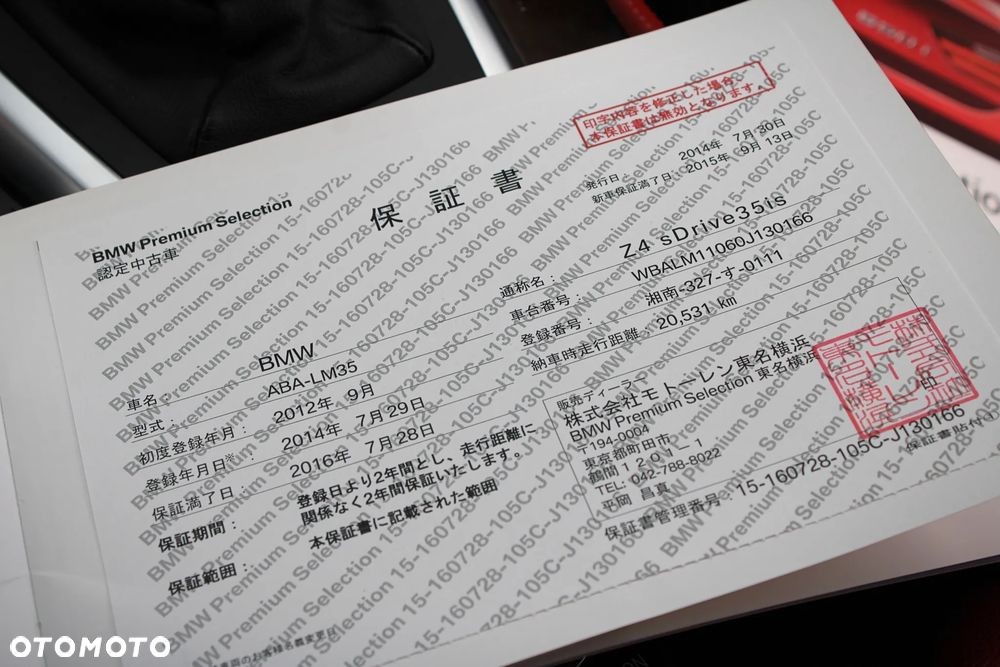 BMW Premium Selection
認定中古車
保証書
印字内容を修正した場合
本保証書は無効となります。
発行日: 2014年 7月30日
新車保証満了日: 2015年 9月 13日
車名: BMW
型式: ABA-LM35
初度登録年月: 2012年 9月
登録年月日※: 2014年 7月29日
保証満了日 2016年 7月28日
保証期間: 登録日より2年間とし、走行距離に
関係なく2年間保証いたします。
保証範囲: 本保証書に記載された範囲
通称名: Z4 sDrive35is
車台番号: WBALM11060J130166
登録番号: 湘南-327-す-0111
納車時走行距離: 20,531 km
販売ディーラー
株式会社モトーレン東名横浜
BMW Premium Selection 東名横浜
〒194-0004
東京都町田市
鶴間1201-1
TEL: 042-788-8022
平岡 昌真
印
保証書管理番号: 15-160728-105C-J130166
保証書貼付
BMW Premium Selection 15-160728-105C-J130166
OTOMOTO